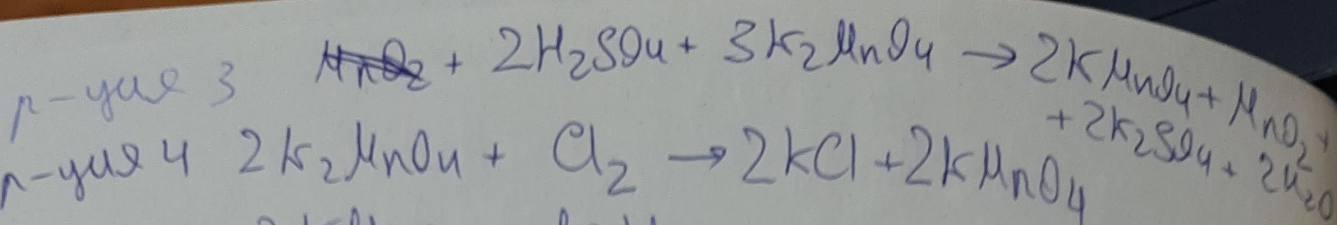 р-ция 3 + 2H₂SO₄ + 3K₂MnO₄ → 2KMnO₄ + MnO₂ +
+ 2K₂SO₄ + 2H₂O
р-ция 4 2K₂MnO₄ + Cl₂ → 2KCl + 2KMnO₄